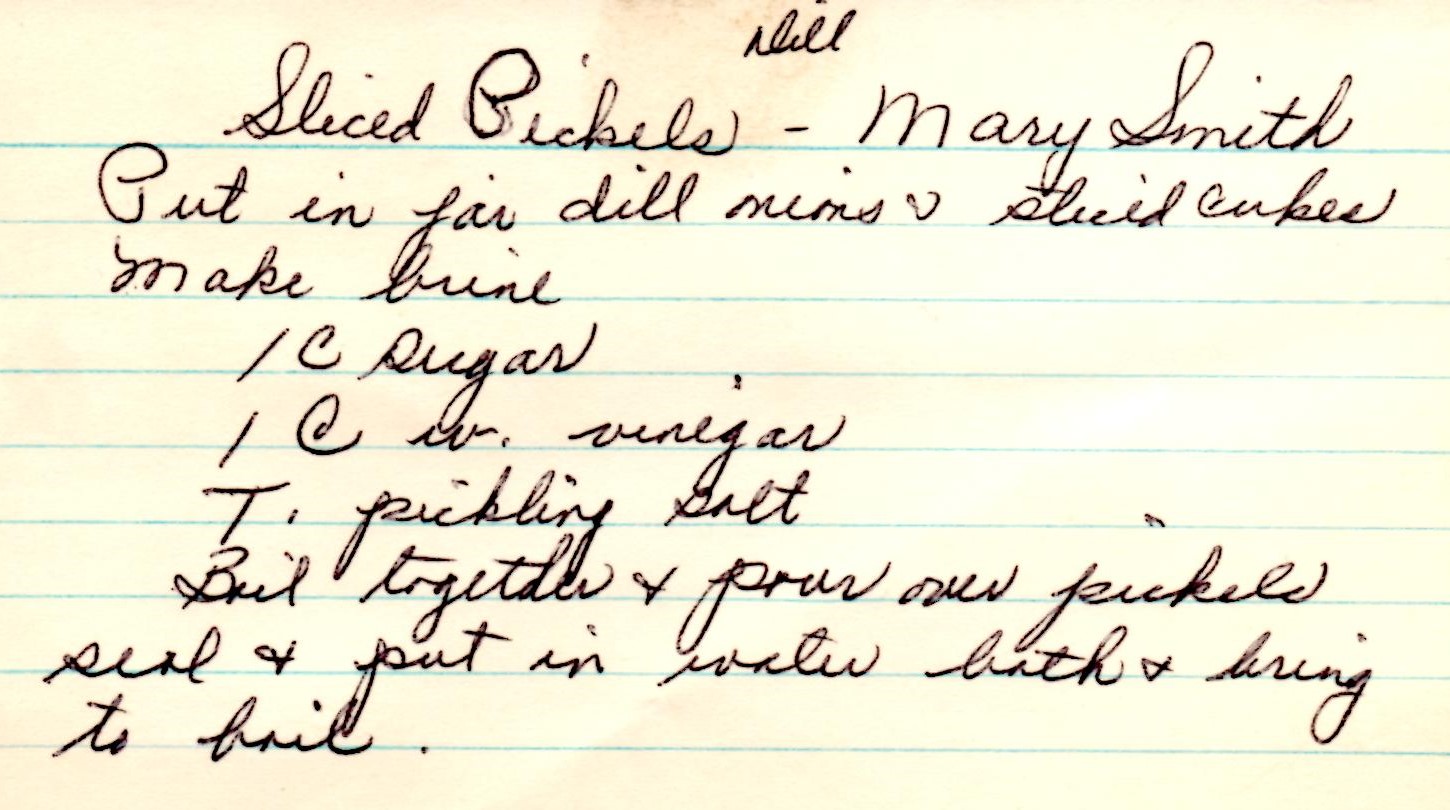 Dill
Sliced Pickels - Mary Smith
Put in jar dill onions & sliced cukes
Make brine
1 C sugar
1 C w. vinegar
T. pickling salt
Boil together & pour over pickels
seal & put in water bath & bring
to boil.